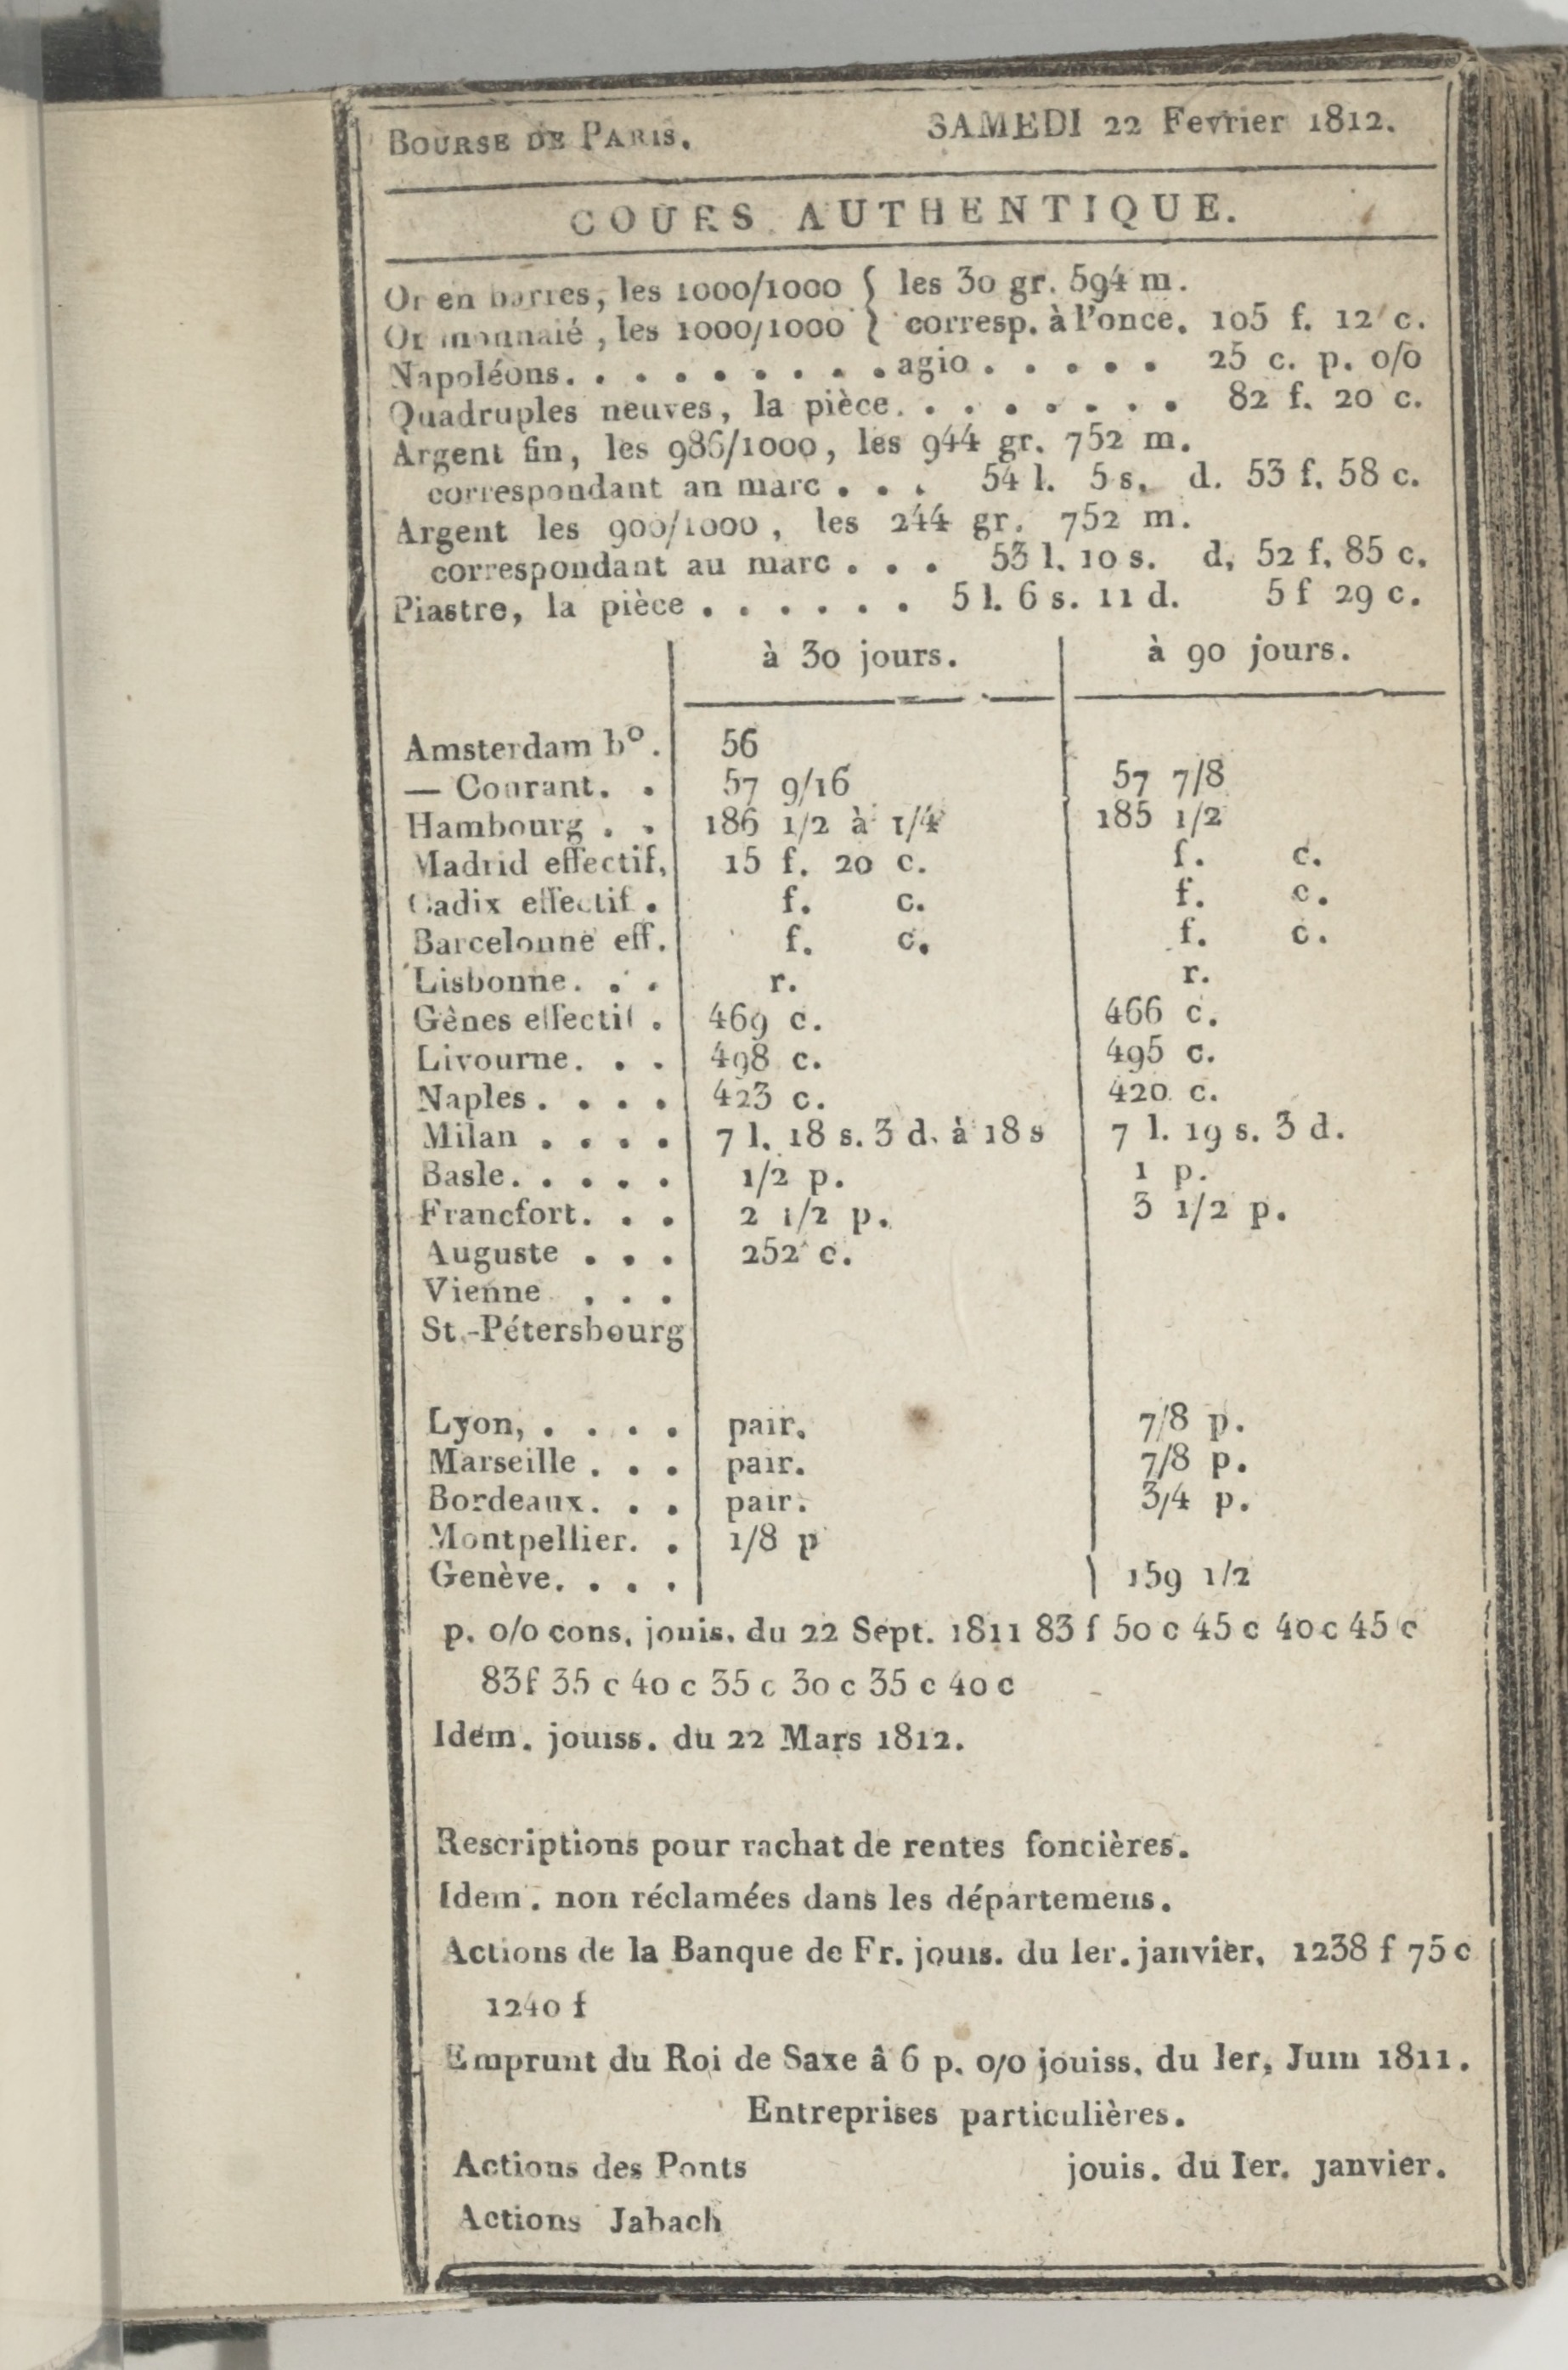 BOURSE DE PARIS. SAMEDI 22 Fevrier 1812.
COURS AUTHENTIQUE.
Or en barres, les 1000/1000 { les 30 gr. 594 m.
Or monnaié, les 1000/1000 } corresp. à l'once. 105 f. 12 c.
Napoléons. . . . . . . . . agio . . . . . 25 c. p. o/o
Quadruples neuves, la pièce. . . . . . . . 82 f. 20 c.
Argent fin, les 986/1000, les 944 gr. 752 m.
correspondant an marc . . . 54 l. 5 s. d. 53 f. 58 c.
Argent les 900/1000, les 244 gr. 752 m.
correspondant au marc . . . 53 l. 10 s. d. 52 f. 85 c.
Piastre, la pièce . . . . . . 5 l. 6 s. 11 d. 5 f 29 c.
à 30 jours. à 90 jours.
Amsterdam bº. 56
— Courant. . 57 9/16 57 7/8
Hambourg . . 186 1/2 à 1/4 185 1/2
Madrid effectif, 15 f. 20 c. f. c.
Cadix effectif . f. c. f. c.
Barcelonne eff. f. c. f. c.
Lisbonne. . . r. r.
Gènes effectif . 469 c. 466 c.
Livourne. . . 498 c. 495 c.
Naples. . . . 423 c. 420 c.
Milan . . . . 7 l. 18 s. 3 d. à 18 s 7 l. 19 s. 3 d.
Basle. . . . . 1/2 p. 1 p.
Francfort. . . 2 1/2 p. 3 1/2 p.
Auguste . . . 252 c.
Vienne . . .
St.-Pétersbourg
Lyon, . . . . pair. 7/8 p.
Marseille . . . pair. 7/8 p.
Bordeaux. . . pair. 3/4 p.
Montpellier. . 1/8 p
Genève. . . . 159 1/2
p. o/o cons, jouis. du 22 Sept. 1811 83 f 50 c 45 c 40 c 45 c
83f 35 c 40 c 35 c 30 c 35 c 40 c
Idem. jouiss. du 22 Mars 1812.
Rescriptions pour rachat de rentes foncières.
Idem. non réclamées dans les départemens.
Actions de la Banque de Fr. jouis. du 1er. janvier, 1238 f 75 c
1240 f
Emprunt du Roi de Saxe â 6 p. o/o jouiss. du 1er, Juin 1811.
Entreprises particulières.
Actions des Ponts jouis. du Ier. janvier.
Actions Jabach